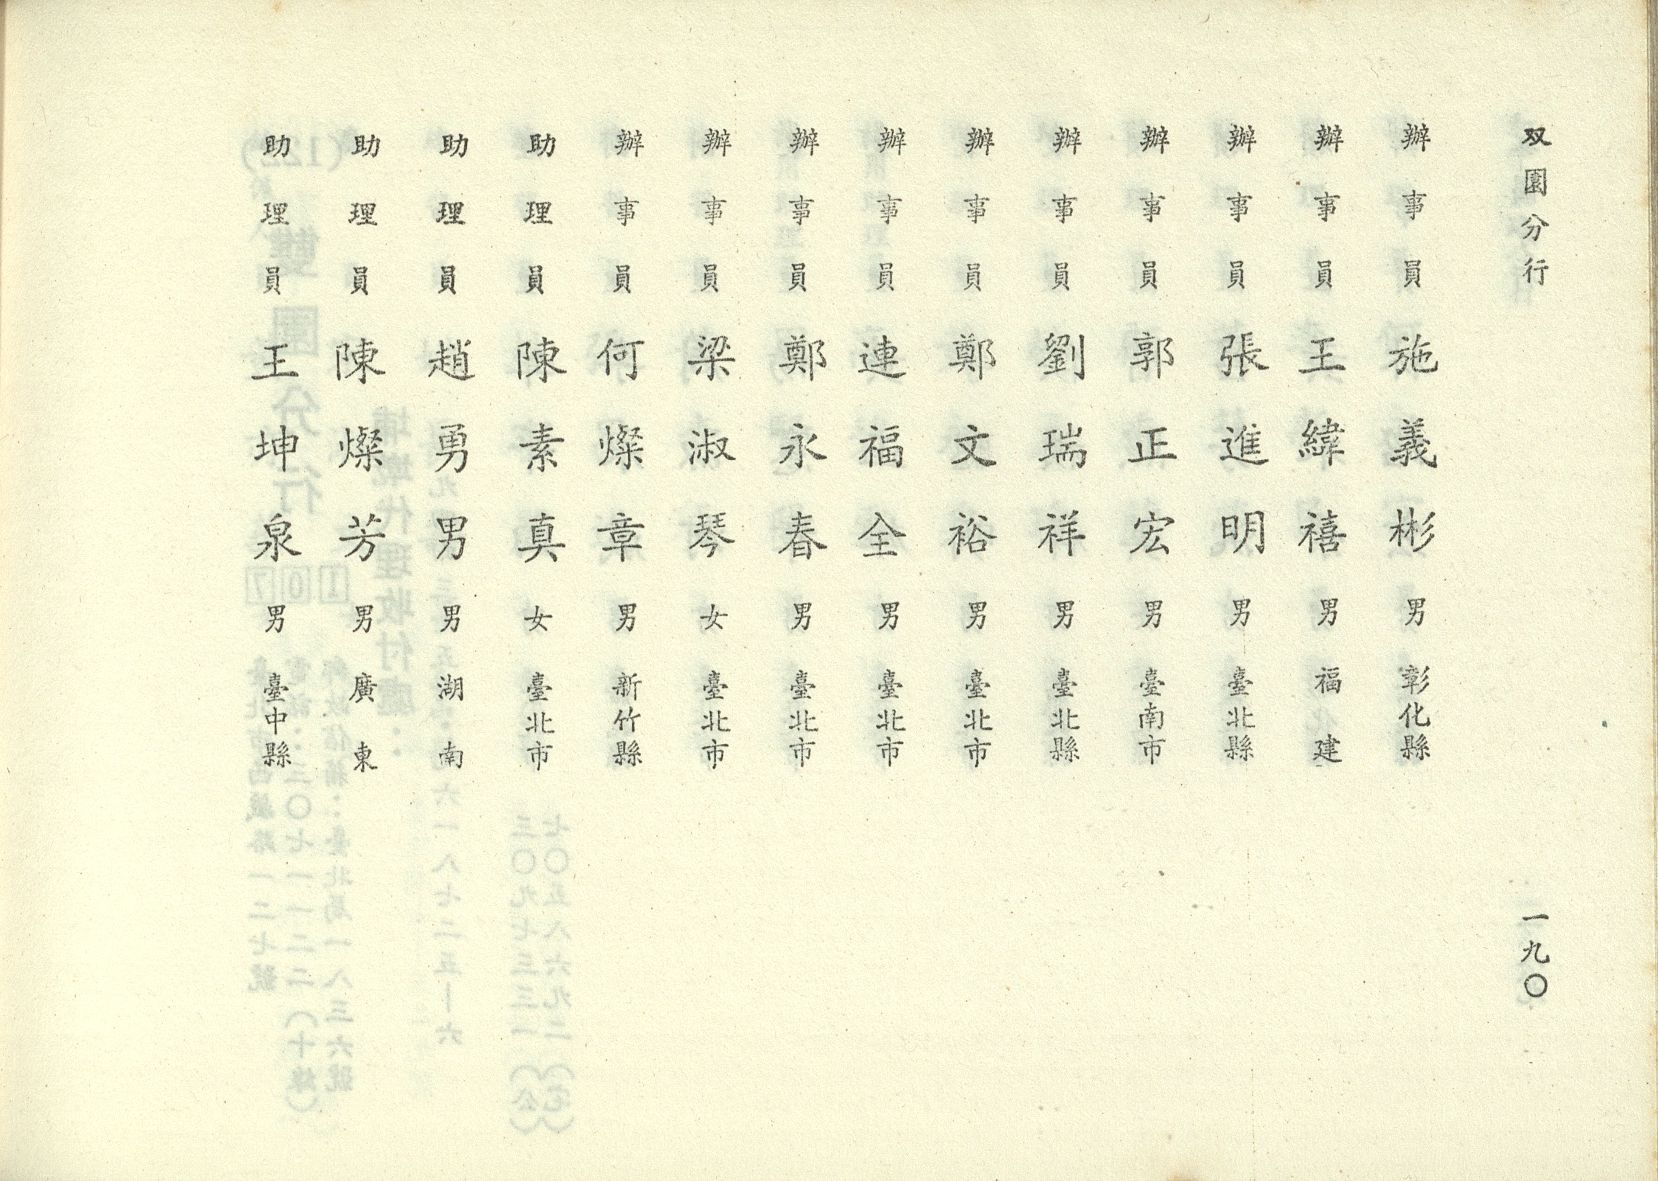 双園分行
一九〇
辦事員 施義彬 男 彰化縣
辦事員 王緯禧 男 福建
辦事員 張進明 男 臺北縣
辦事員 郭正宏 男 臺南市
辦事員 劉瑞祥 男 臺北縣
辦事員 鄭文裕 男 臺北市
辦事員 連福全 男 臺北市
辦事員 鄭永春 男 臺北市
辦事員 梁淑琴 女 臺北市
辦事員 何燦章 男 新竹縣
助理員 陳素真 女 臺北市
助理員 趙勇男 男 湖南
助理員 陳燦芳 男 廣東
助理員 王坤泉 男 臺中縣